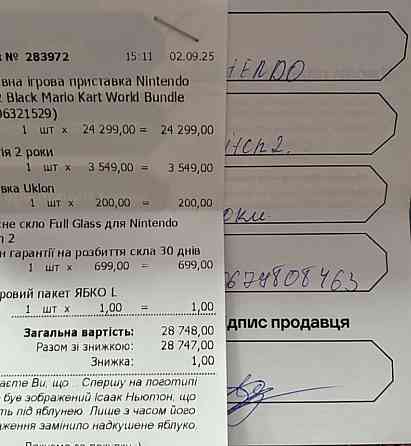 № 283972 15:11 02.09.25
вна ігрова приставка Nintendo
2 Black Mario Kart World Bundle
96321529)
1 шт х 24 299,00 = 24 299,00
ія 2 роки
1 шт х 3 549,00 = 3 549,00
вка Uklon
1 шт х 200,00 = 200,00
не скло Full Glass для Nintendo
h 2
н гарантії на розбиття скла 30 днів
1 шт х 699,00 = 699,00
ровий пакет ЯБКО L
1 шт х 1,00 = 1,00
Загальна вартість: 28 748,00
Разом зі знижкою: 28 747,00
Знижка: 1,00
аєте Ви, що .. Спершу на логотипі
був зображений Ісаак Ньютон, що
ть під яблунею. Лише з часом його
ження замінило надкушене яблуко.
NTENDO
ітсh 2.
оки
674808463
дпис продавця